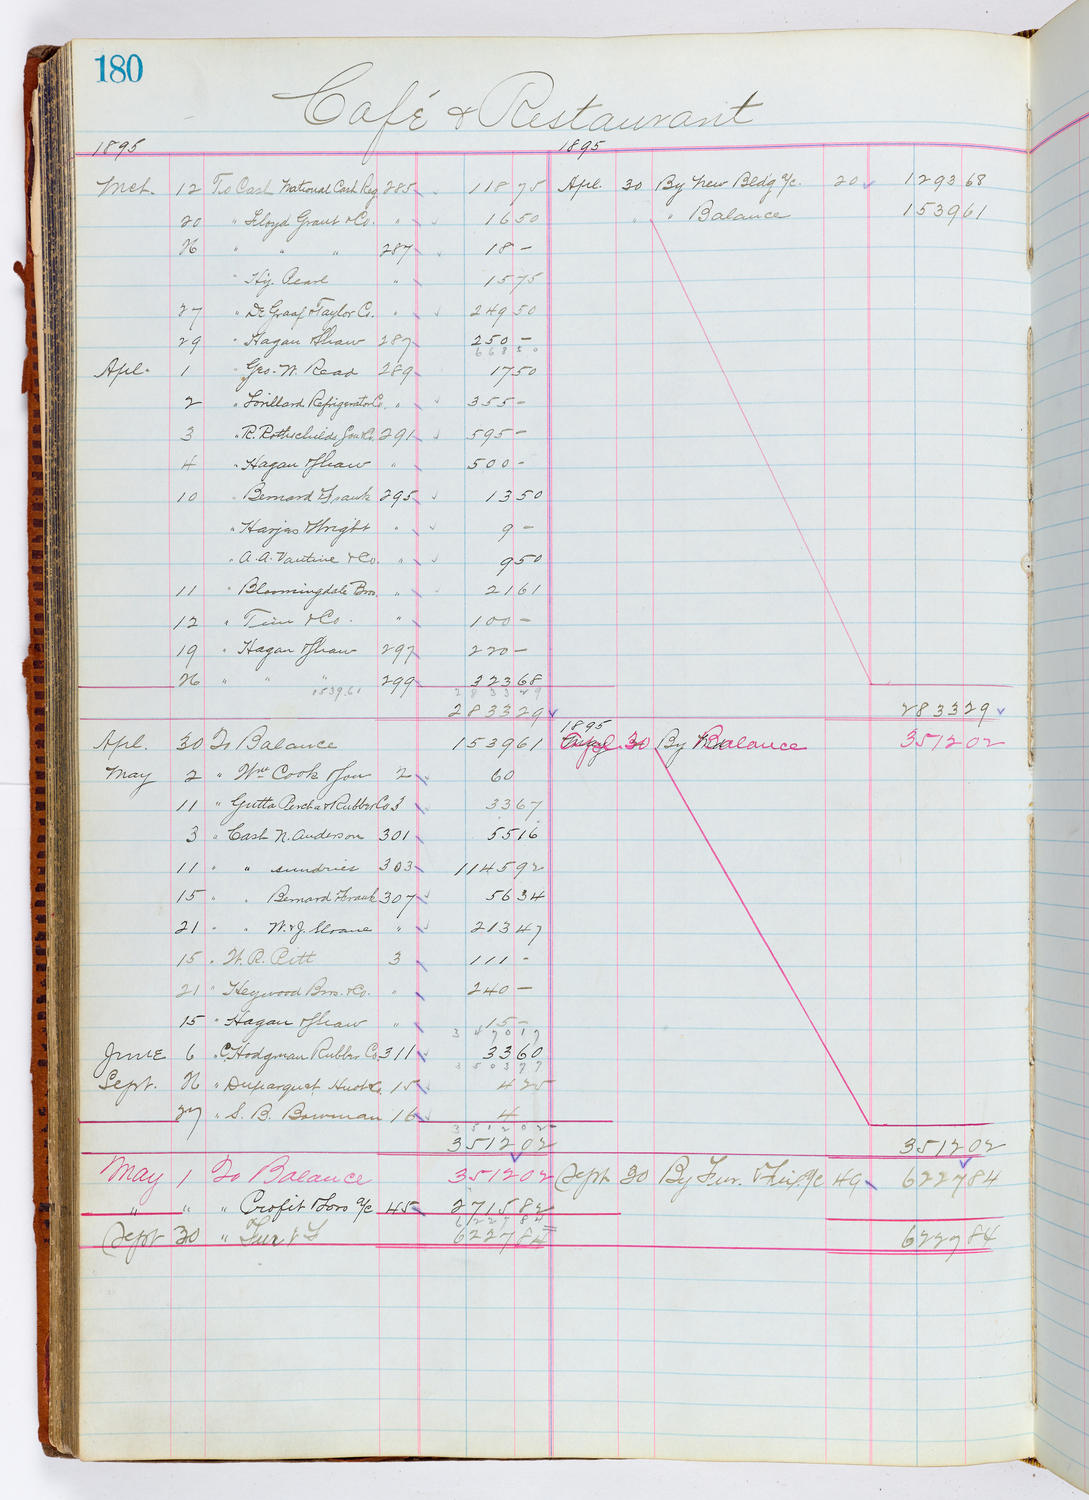 180
Café & Restaurant
1895 1895
Mch. 12 To Cash National Cash Reg. 285 118 75 Apl. 30 By New Bldg a/c. 20 1293 68
20 " Lloyd Grant & Co. " 16 50 " " Balance 1539 61
26 " " " 287 18 –
" Hy. Pearl " 15 75
27 " De Graaf & Taylor Co. " 249 50
29 " Hagan & Shaw 287 250 –
668 50
Apl. 1 " Geo. W. Read 289 17 50
2 " Lorillard Refrigerator Co. " 355 –
3 " R. Rothschilds Son & Co. 291 595 –
4 " Hagan & Shaw " 500 –
10 " Bernard Frank 295 13 50
" Harjes & Wright " 9 –
" A. A. Vantine & Co. " 9 50
11 " Bloomingdale Bros. " 21 61
12 " & Co. " 100 –
19 " Hagan & Shaw 297 220 –
26 " " " 299 323 68
1539.61 2833 29
2833 29 2833 29
1895
Apl. 30 To Balance 1539 61 Apl. 30 By Balance 3512 02
May 2 " Wm Cook & Son 2 60
11 " Gutta Percha & Rubber Co 3 33 67
3 " Cash N. Anderson 301 55 16
11 " " sundries 303 1145 92
15 " " Bernard Frank 307 56 34
21 " " W. & J. Sloane " 213 47
15 " W. R. Pitt 3 111 –
21 " Heywood Bros. & Co. " 240 –
15 " Hagan & Shaw " 15 –
3470 17
June 6 " C. Hodgman Rubber Co 311 33 60
3503 77
Sept. 26 " Duparquet, Huot & Co. 15 4 25
27 " S. B. Bowman 16 4
3512 02
3512 02 3512 02
May 1 To Balance 3512 02 Sept 30 By Fur. & Fix a/c 49 6227 84
" " " Profit & Loss a/c 45 2715 82
6227 84
Sept 30 " Fur & F 6227 84 6227 84